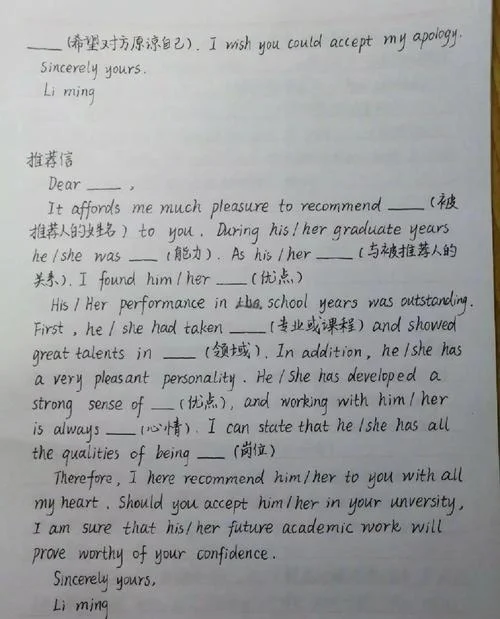 ____(希望对方原谅自己). I wish you could accept my apology.
Sincerely yours.
Li ming
推荐信
Dear ____ ,
It affords me much pleasure to recommend ____ (被
推荐人的姓名) to you. During his/her graduate years
he/she was ____ (能力). As his/her ____ (与被推荐人的
关系), I found him/her ____ (优点)
His/Her performance in school years was outstanding.
First, he/she had taken ____ (专业或课程) and showed
great talents in ____ (领域). In addition, he/she has
a very pleasant personality. He/She has developed a
strong sense of ____ (优点), and working with him/her
is always ____ (心情). I can state that he/she has all
the qualities of being ____ (岗位)
Therefore, I here recommend him/her to you with all
my heart. Should you accept him/her in your unversity,
I am sure that his/her future academic work will
prove worthy of your confidence.
Sincerely yours,
Li ming